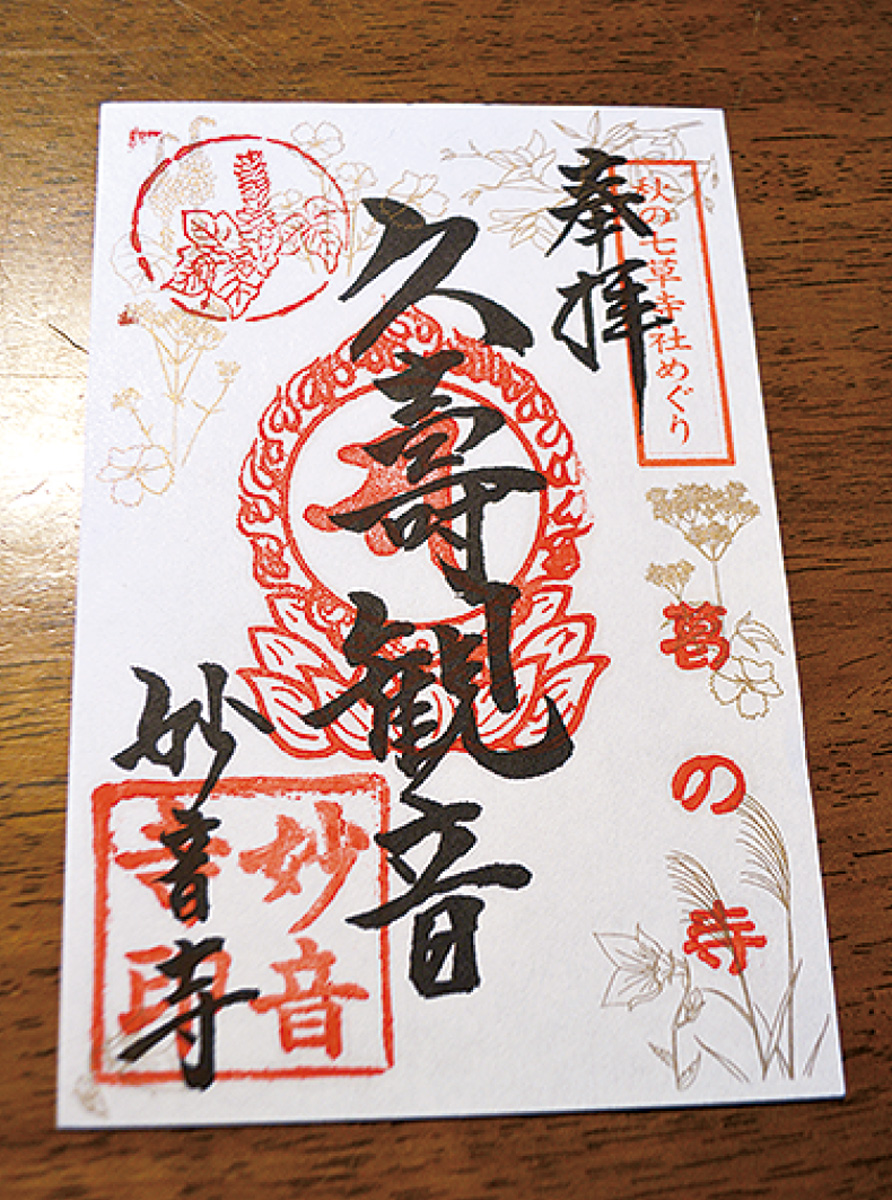 秋の七草寺社めぐり
奉拝
葛の寺
久寿観音
妙音寺
妙音
寺印